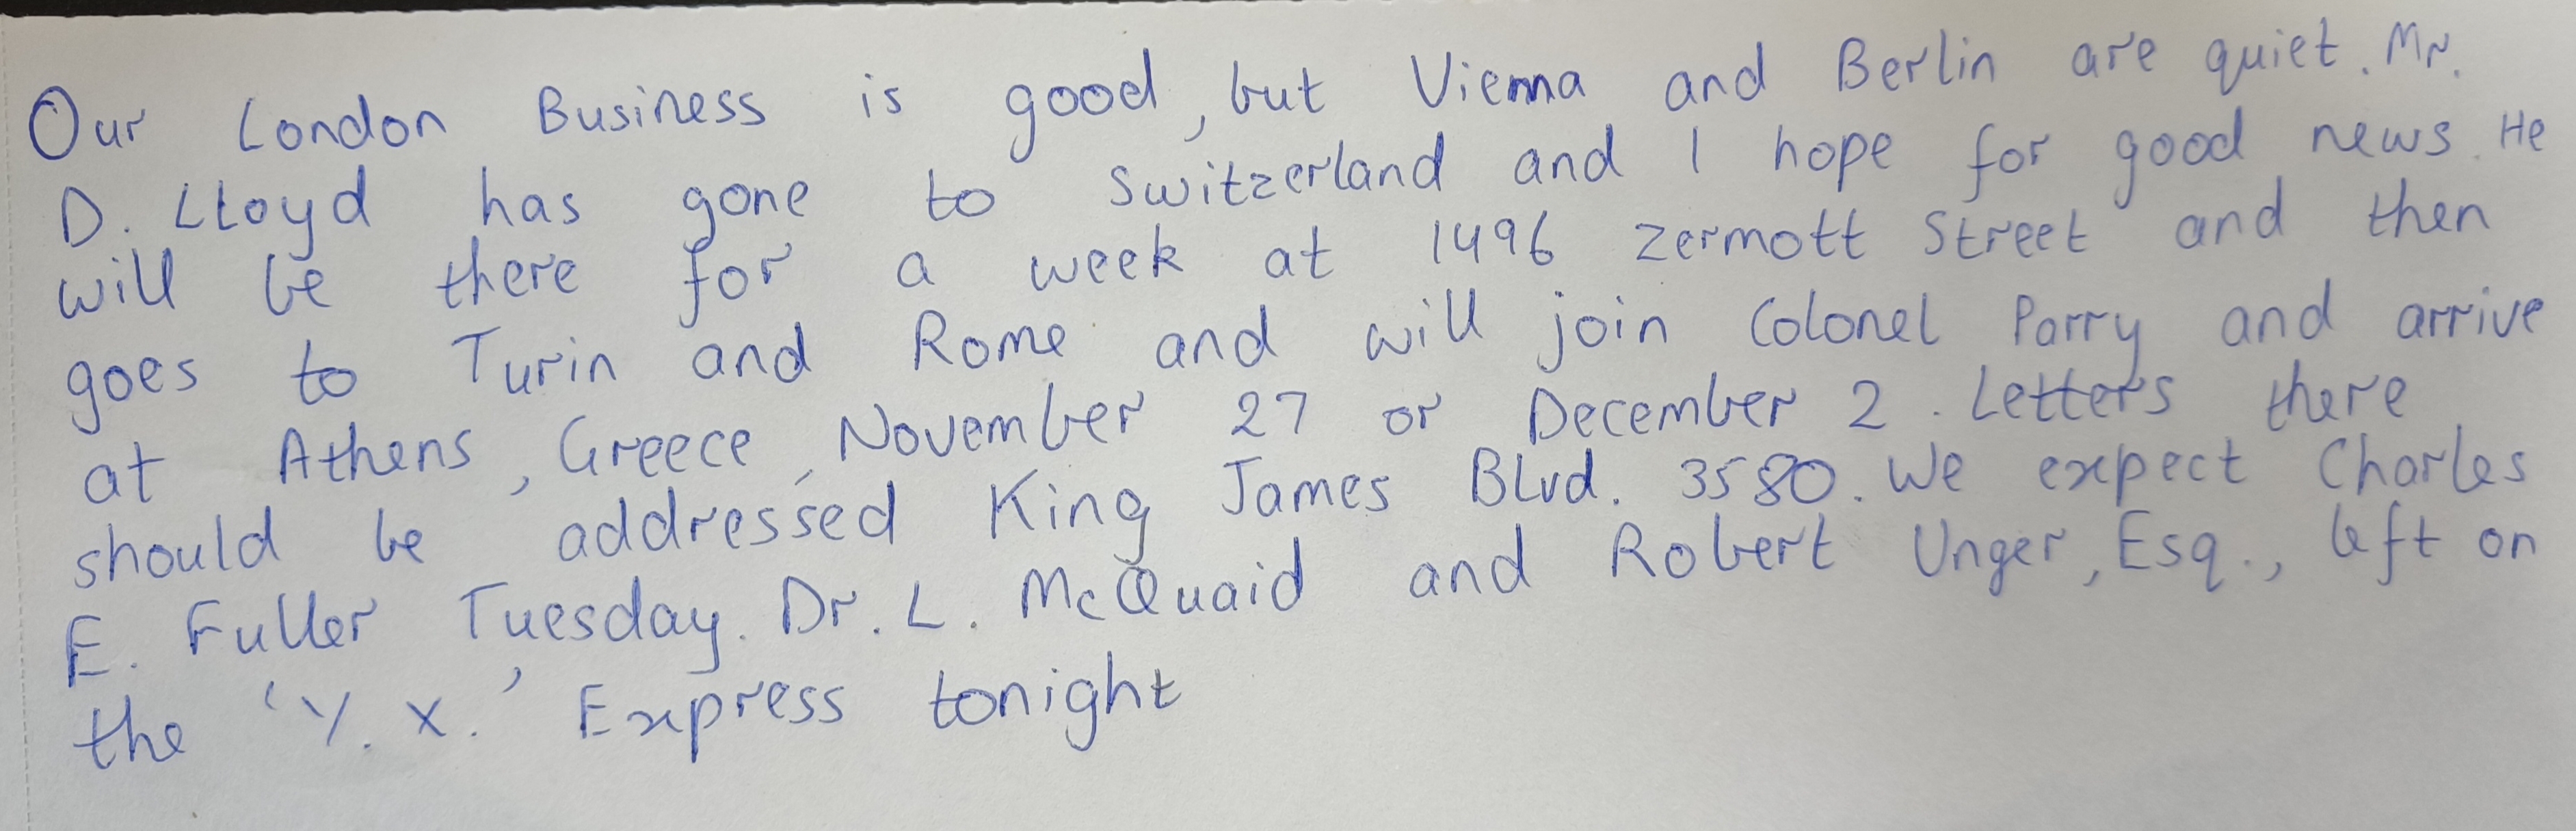 Our London Business is good, but Vienna and Berlin are quiet. Mr.
D. Lloyd has gone to Switzerland and I hope for good news. He
will be there for a week at 1496 Zermott Street and then
goes to Turin and Rome and will join Colonel Parry and arrive
at Athens, Greece, November 27 or December 2. Letters there
should be addressed King James Blvd. 3580. We expect Charles
E. Fuller Tuesday. Dr. L. McQuaid and Robert Unger, Esq., left on
the 'Y. X.' Express tonight